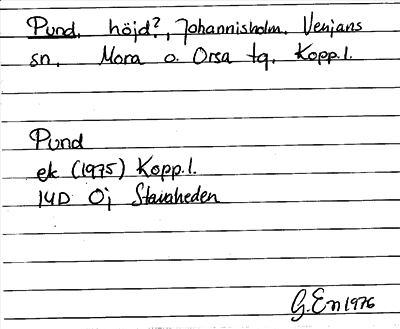 Pund, höjd?, Johannisholm, Venjans
sn, Mora o. Orsa tg, Kopp.l.
Pund
ek (1975) Kopp.l.
14D Öj Stavaheden
G.En 1976